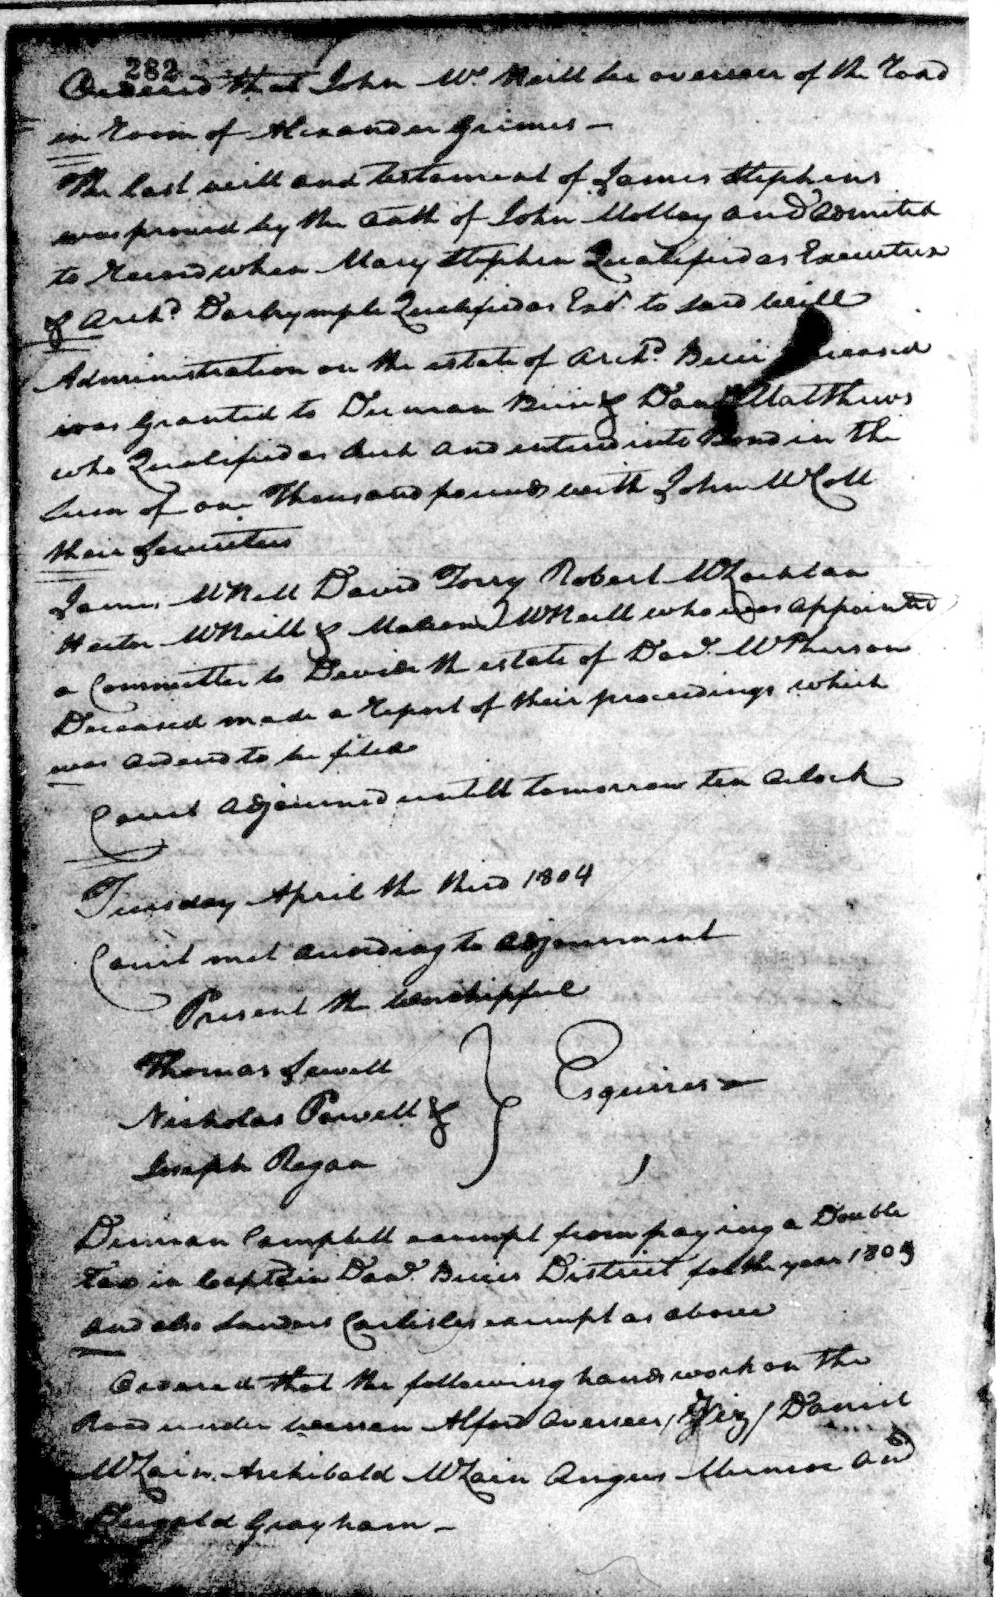 282
Ordered that John Mc Neill be overseer of the road
in room of Alexander Grimes —
The last will and testament of James Stephens
was proved by the oath of John Molloy and admited
to record when Mary Stephen Qualified as Executrix
& Archd. Darlrymple Qualified as Exr. to said will
Administration on the estate of Archd. Buie deceased
was granted to Duncan Buie & Danl. Matthews
who Qualified as such and entered into Bond in the
sum of one Thousand pounds with John McColl
their Securities
James McNeill David Torry Robert McLachlan
Hector McNeill & Malcom McNeill who was appointed
a Committee to Devide the estate of Danl. McPherson
Deceased made a report of their proceedings which
was ordered to be filed
Court adjourned untill tomorrow ten oclock
Tuesday April the third 1804
Court met according to adjournment
Present the worshipfull
Thomas Sewell
Nicholas Powell &
Joseph Regan
Esquires
Duncan Campbell exempt from paying a Double
Tax in Captain Danl. Buies District for the year 1803
and also Sanders Carlisles exempt as above
Ordered that the following hands work on the
Road under Warren Alford Overseer, (Viz) Daniel
McLain, Archibald McLain Angus Munroe and
Dugald Grayham —